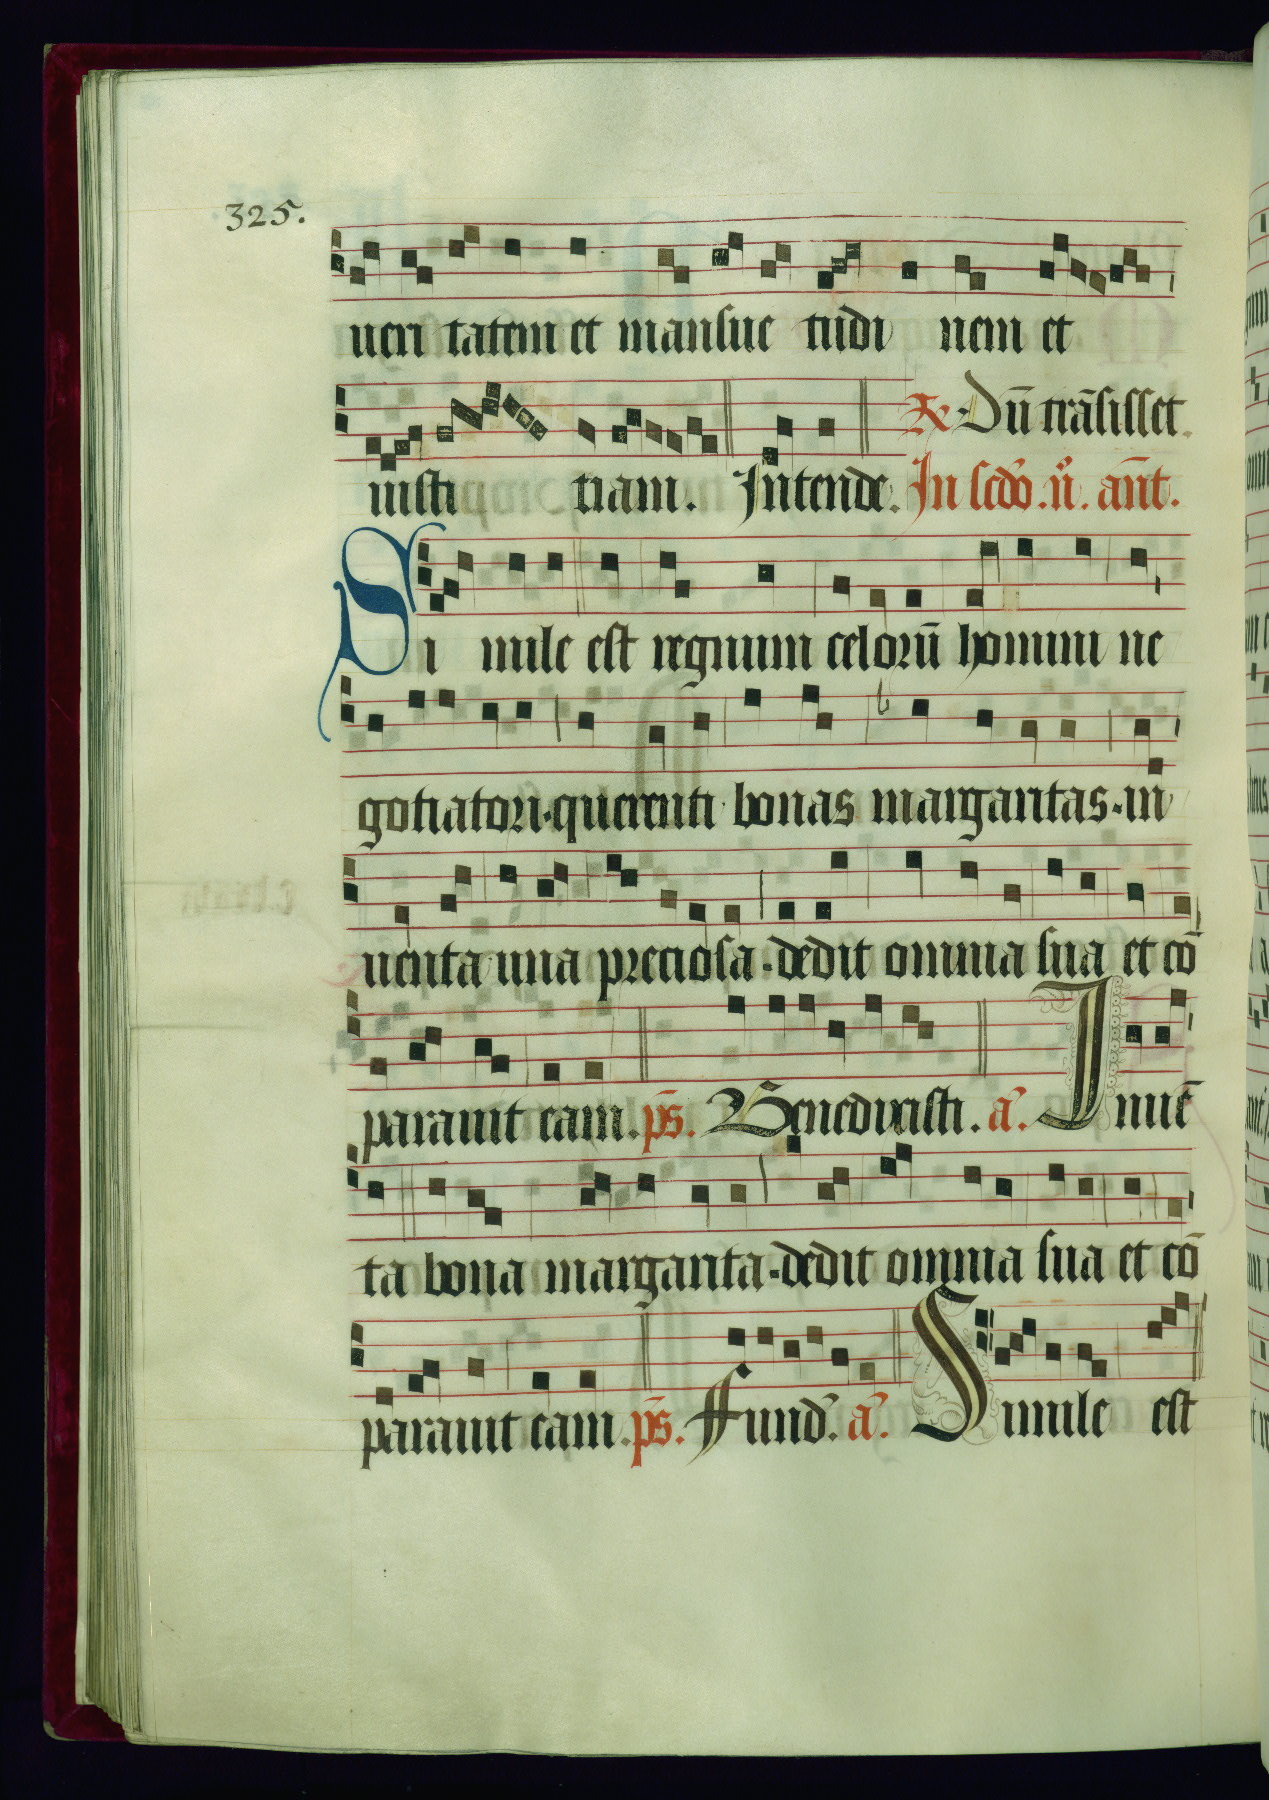 325.
ueri tatem et mansue tudi nem et
R Dū trāsisset.
iusti tiam. Intende. In scdo. n̄. ant.
Si mile est regnum celorū homini ne
gotiatori. querenti bonas margaritas. in
uenta una preciosa. dedit omnia sua et cō
parauit eam. ps. Benedixisti. a. Inuē
ta bona margarita. dedit omnia sua et cō
parauit eam. ps. Fund. a. Simile est